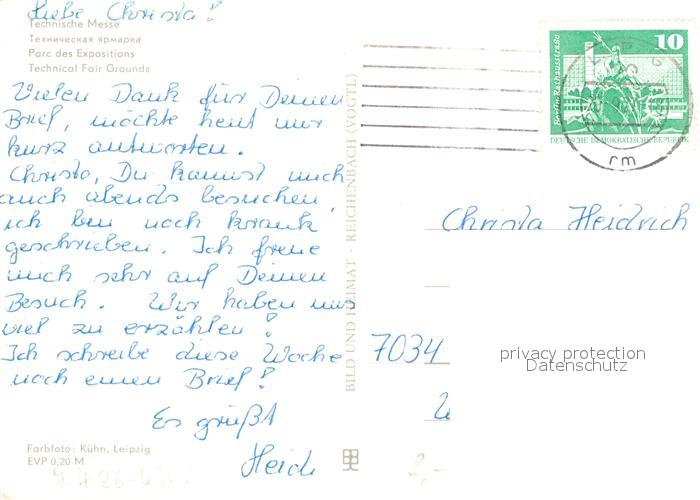 Liebe Christa!
Technische Messe
Техническая ярмарка
Parc des Expositions
Technical Fair Grounds
Vielen Dank für Deinen
Brief, möchte heut nur
kurz antworten.
Christa, Du kannst mich
auch abends besuchen,
ich bin noch krank
geschrieben. Ich freue
mich sehr auf Deinen
Besuch. Wir haben uns
viel zu erzählen!
Ich schreibe diese Woche
noch einen Brief!
Es grüßt
Heidi
Farbfoto: Kühn, Leipzig
EVP 0,20 M
BILD UND HEIMAT - REICHENBACH (VOGTL)
10
Berlin, Rathausstraße
DEUTSCHE DEMOKRATISCHE REPUBLIK
rm
Christa Heidrich
7034
privacy protection
Datenschutz